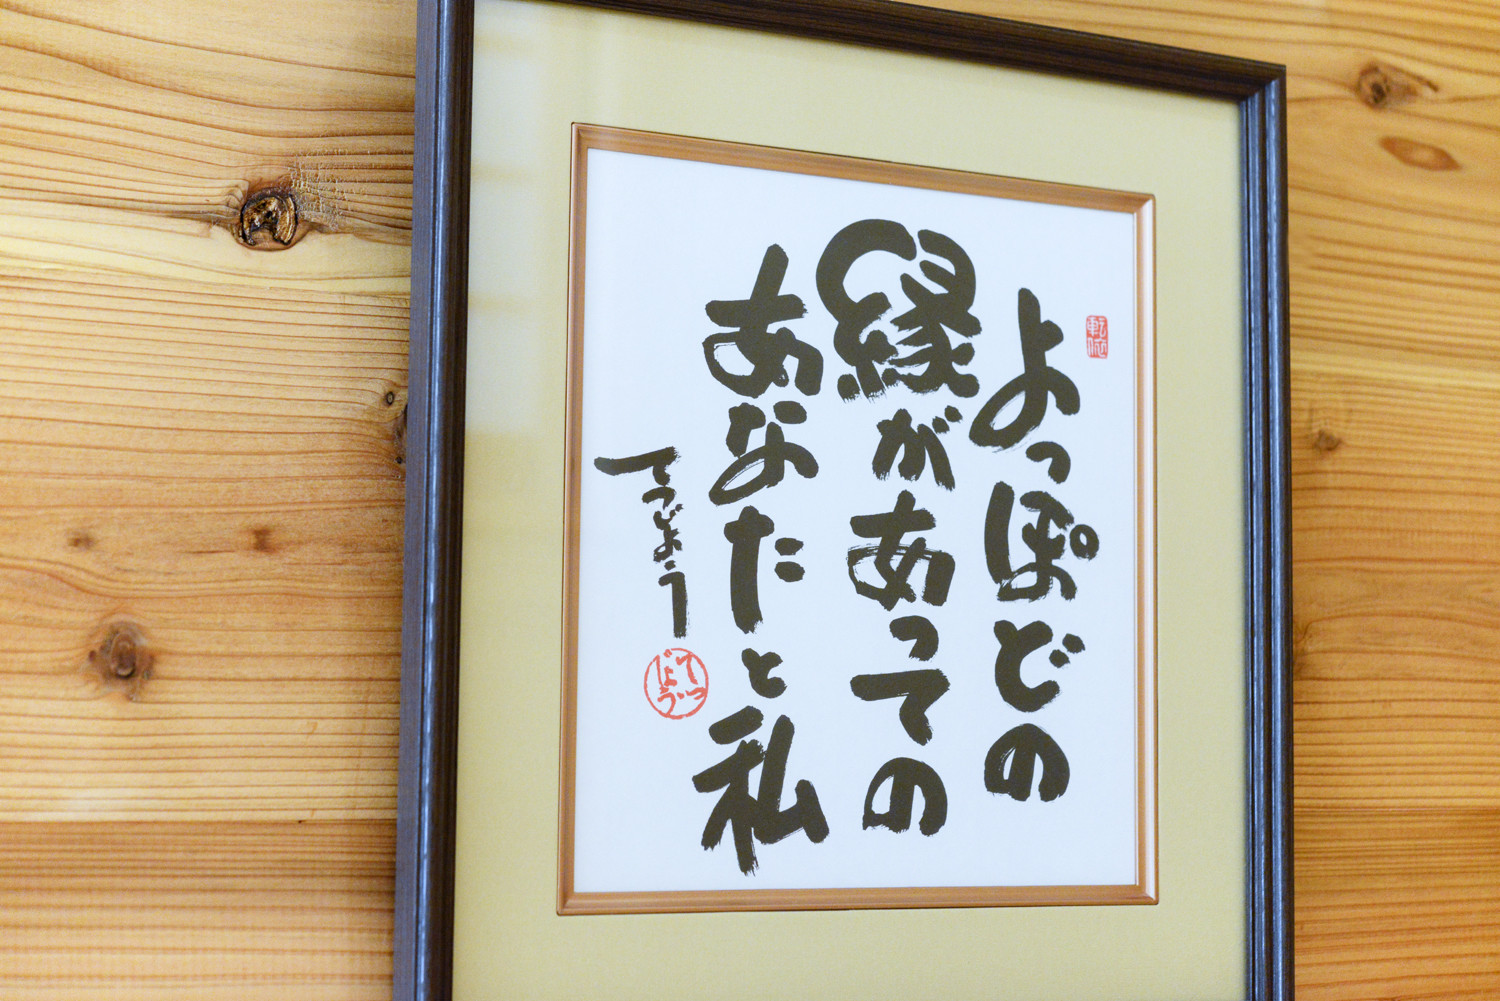 よっぽどの
縁があっての
あなたと私
てつじょう
てつ
じょう